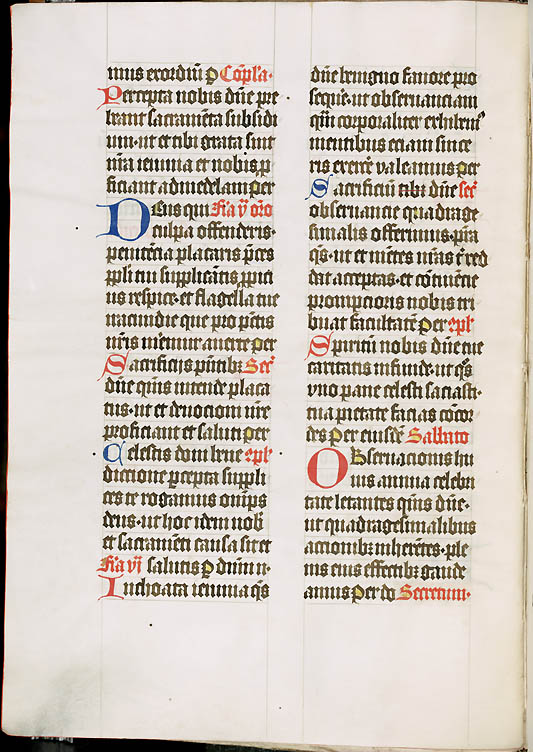 mus exordiū p Cōpl'a.
Percepta nobis dn̄e pre
beant sacramēta subsidi
um. ut et tibi grata sint
nr̄a ieiunia et nobis p̲
ficiant ad medelam per
Deus qui F̄ia v̄ or̄o
culpa offenderis.
penitēcia placaris p̄ces
pp̄li tui supplicātis p̄pici
us respice. et flagella tue
iracundie que pro pc̄tis
nr̄is merem̄ auerte per
Sacrificijs pn̄tibꝫ Sec̄
dn̄e qūs intende placa
tus. ut et deuocioni nr̄e
proficiant et saluti per
Celestis doni bene cpl'
diccione percepta suppli
ces te rogamus omp̄s
deus. ut hoc idem nob̄
et sacramēti causa sit et
F̄ia vi salutis p dn̄m n.
Inchoata ieiunia qs̄
dn̄e benigno fauore pro
sequer̄. ut obseruanciam
quā corporaliter exhibemꝰ
mentibus eciam since
ris exerc̄e valeamus per
Sacrificiū tibi dn̄e sec̄
obseruancie quadrage
simalis offerimus. p̄sta
qs̄. ut et mētes nr̄as t̄ red
dat acceptas. et cōtinēcie
prompcioris nobis tri
buat facultatē per cpl'
Spiritū nobis dn̄e tue
caritatis infunde. ut qs̄
vno pane celesti saciasti.
tua pietate facias cōcor
des per eiusdē Sabbato
Obseruacionis hu
ius annua celebri
tate letantes qūs dn̄e.
ut quadragesimalibus
accionibꝫ inherētes. ple
nis eius effectibꝫ gaude
amus per do Secretum.